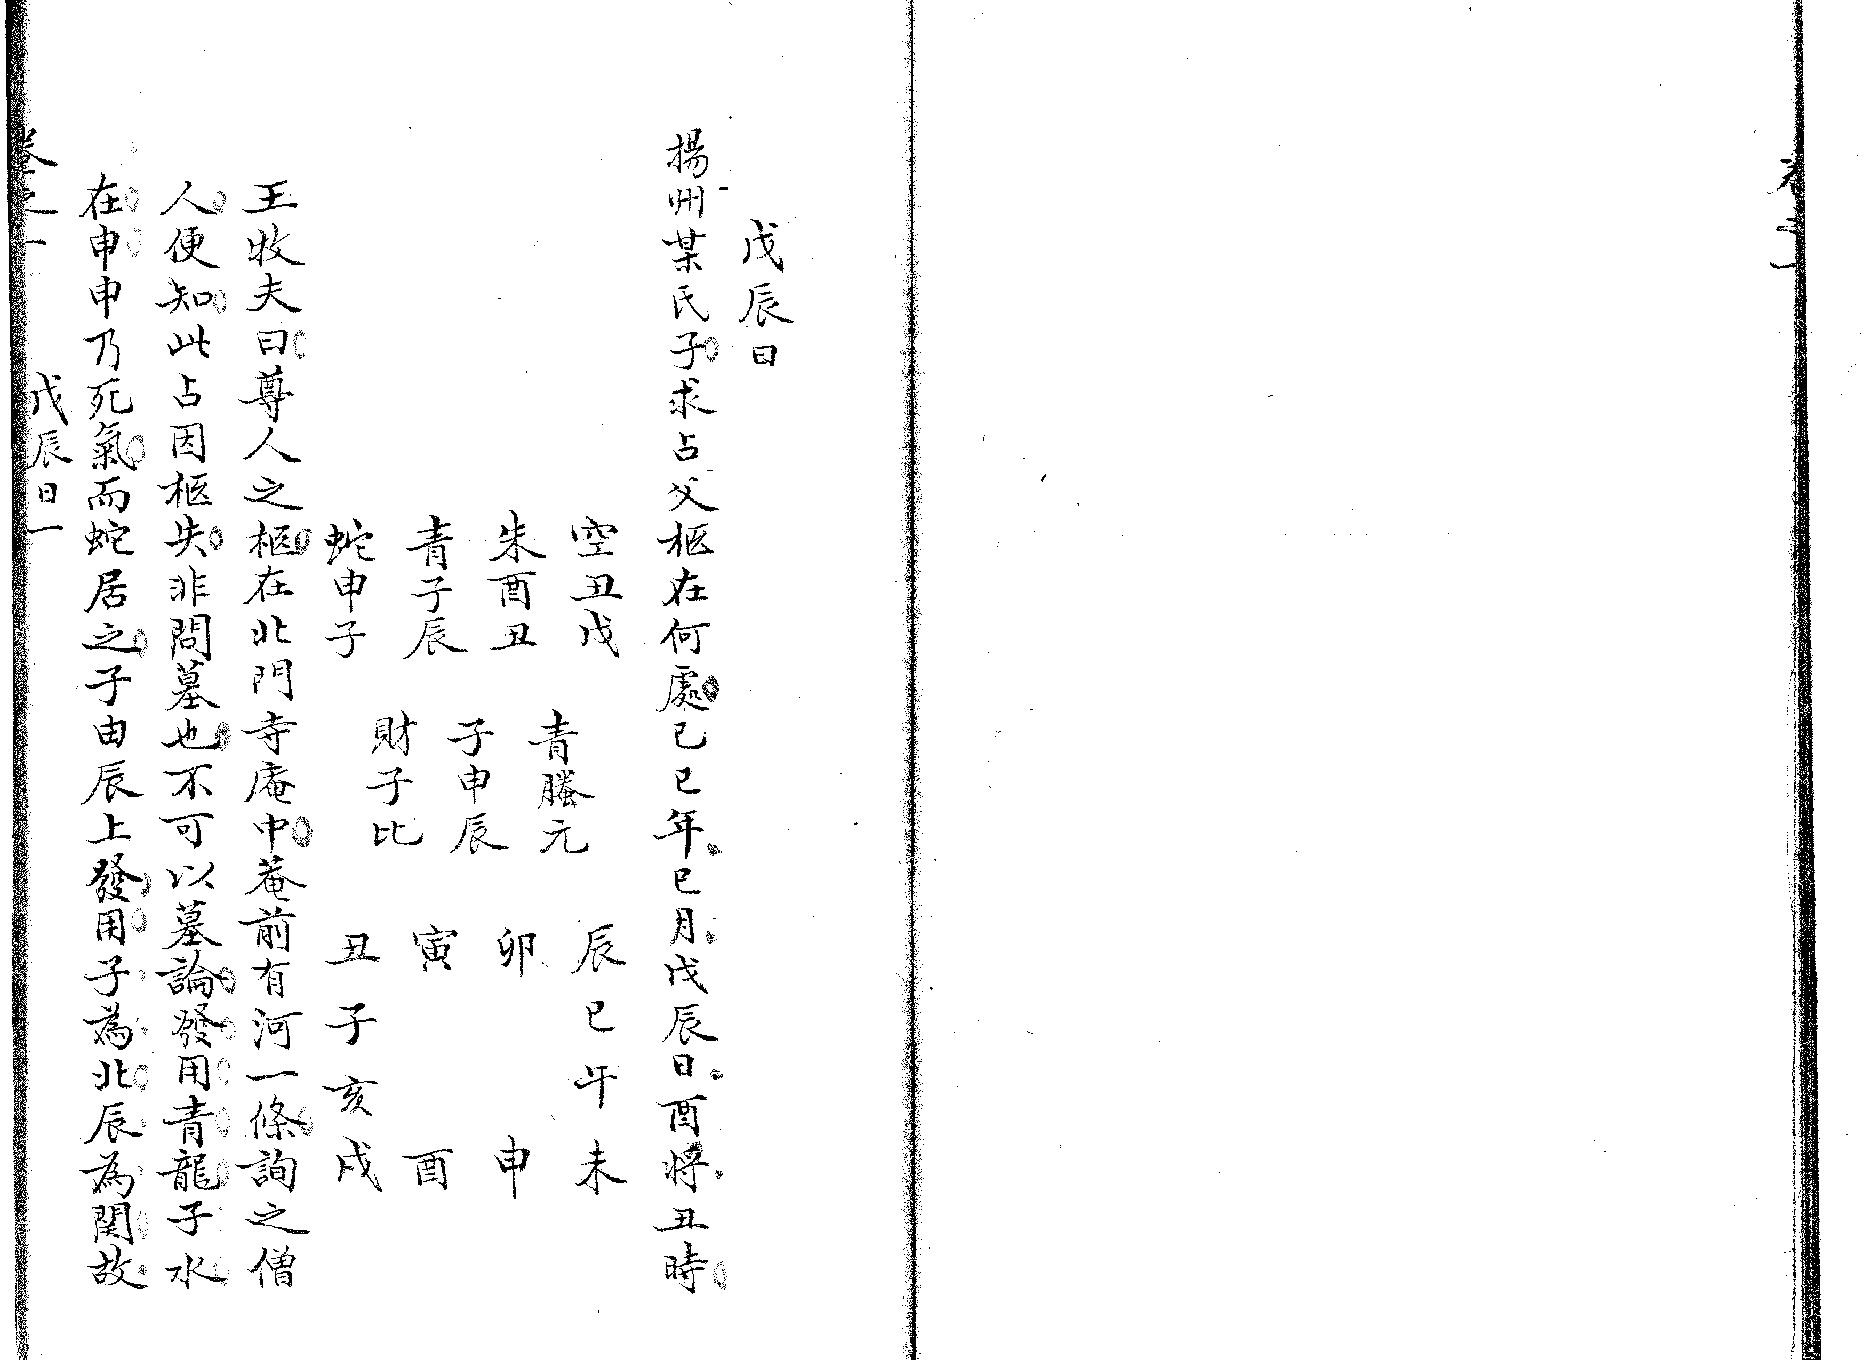 卷之一
戊辰日
揚州某氏子求占父柩在何處己巳年巳月戊辰日酉將丑時
空丑戊
朱酉丑
青子辰
蛇申子
青螣元
子申辰
財子比
辰巳午未
卯 申
寅 酉
丑子亥戌
王牧夫曰尊人之柩在北門寺庵中菴前有河一條詢之僧
人便知此占因柩失非問墓也不可以墓論發用青龍子水
在申申乃死氣而蛇居之子由辰上發用子為北辰為関故
卷之一 戊辰日一